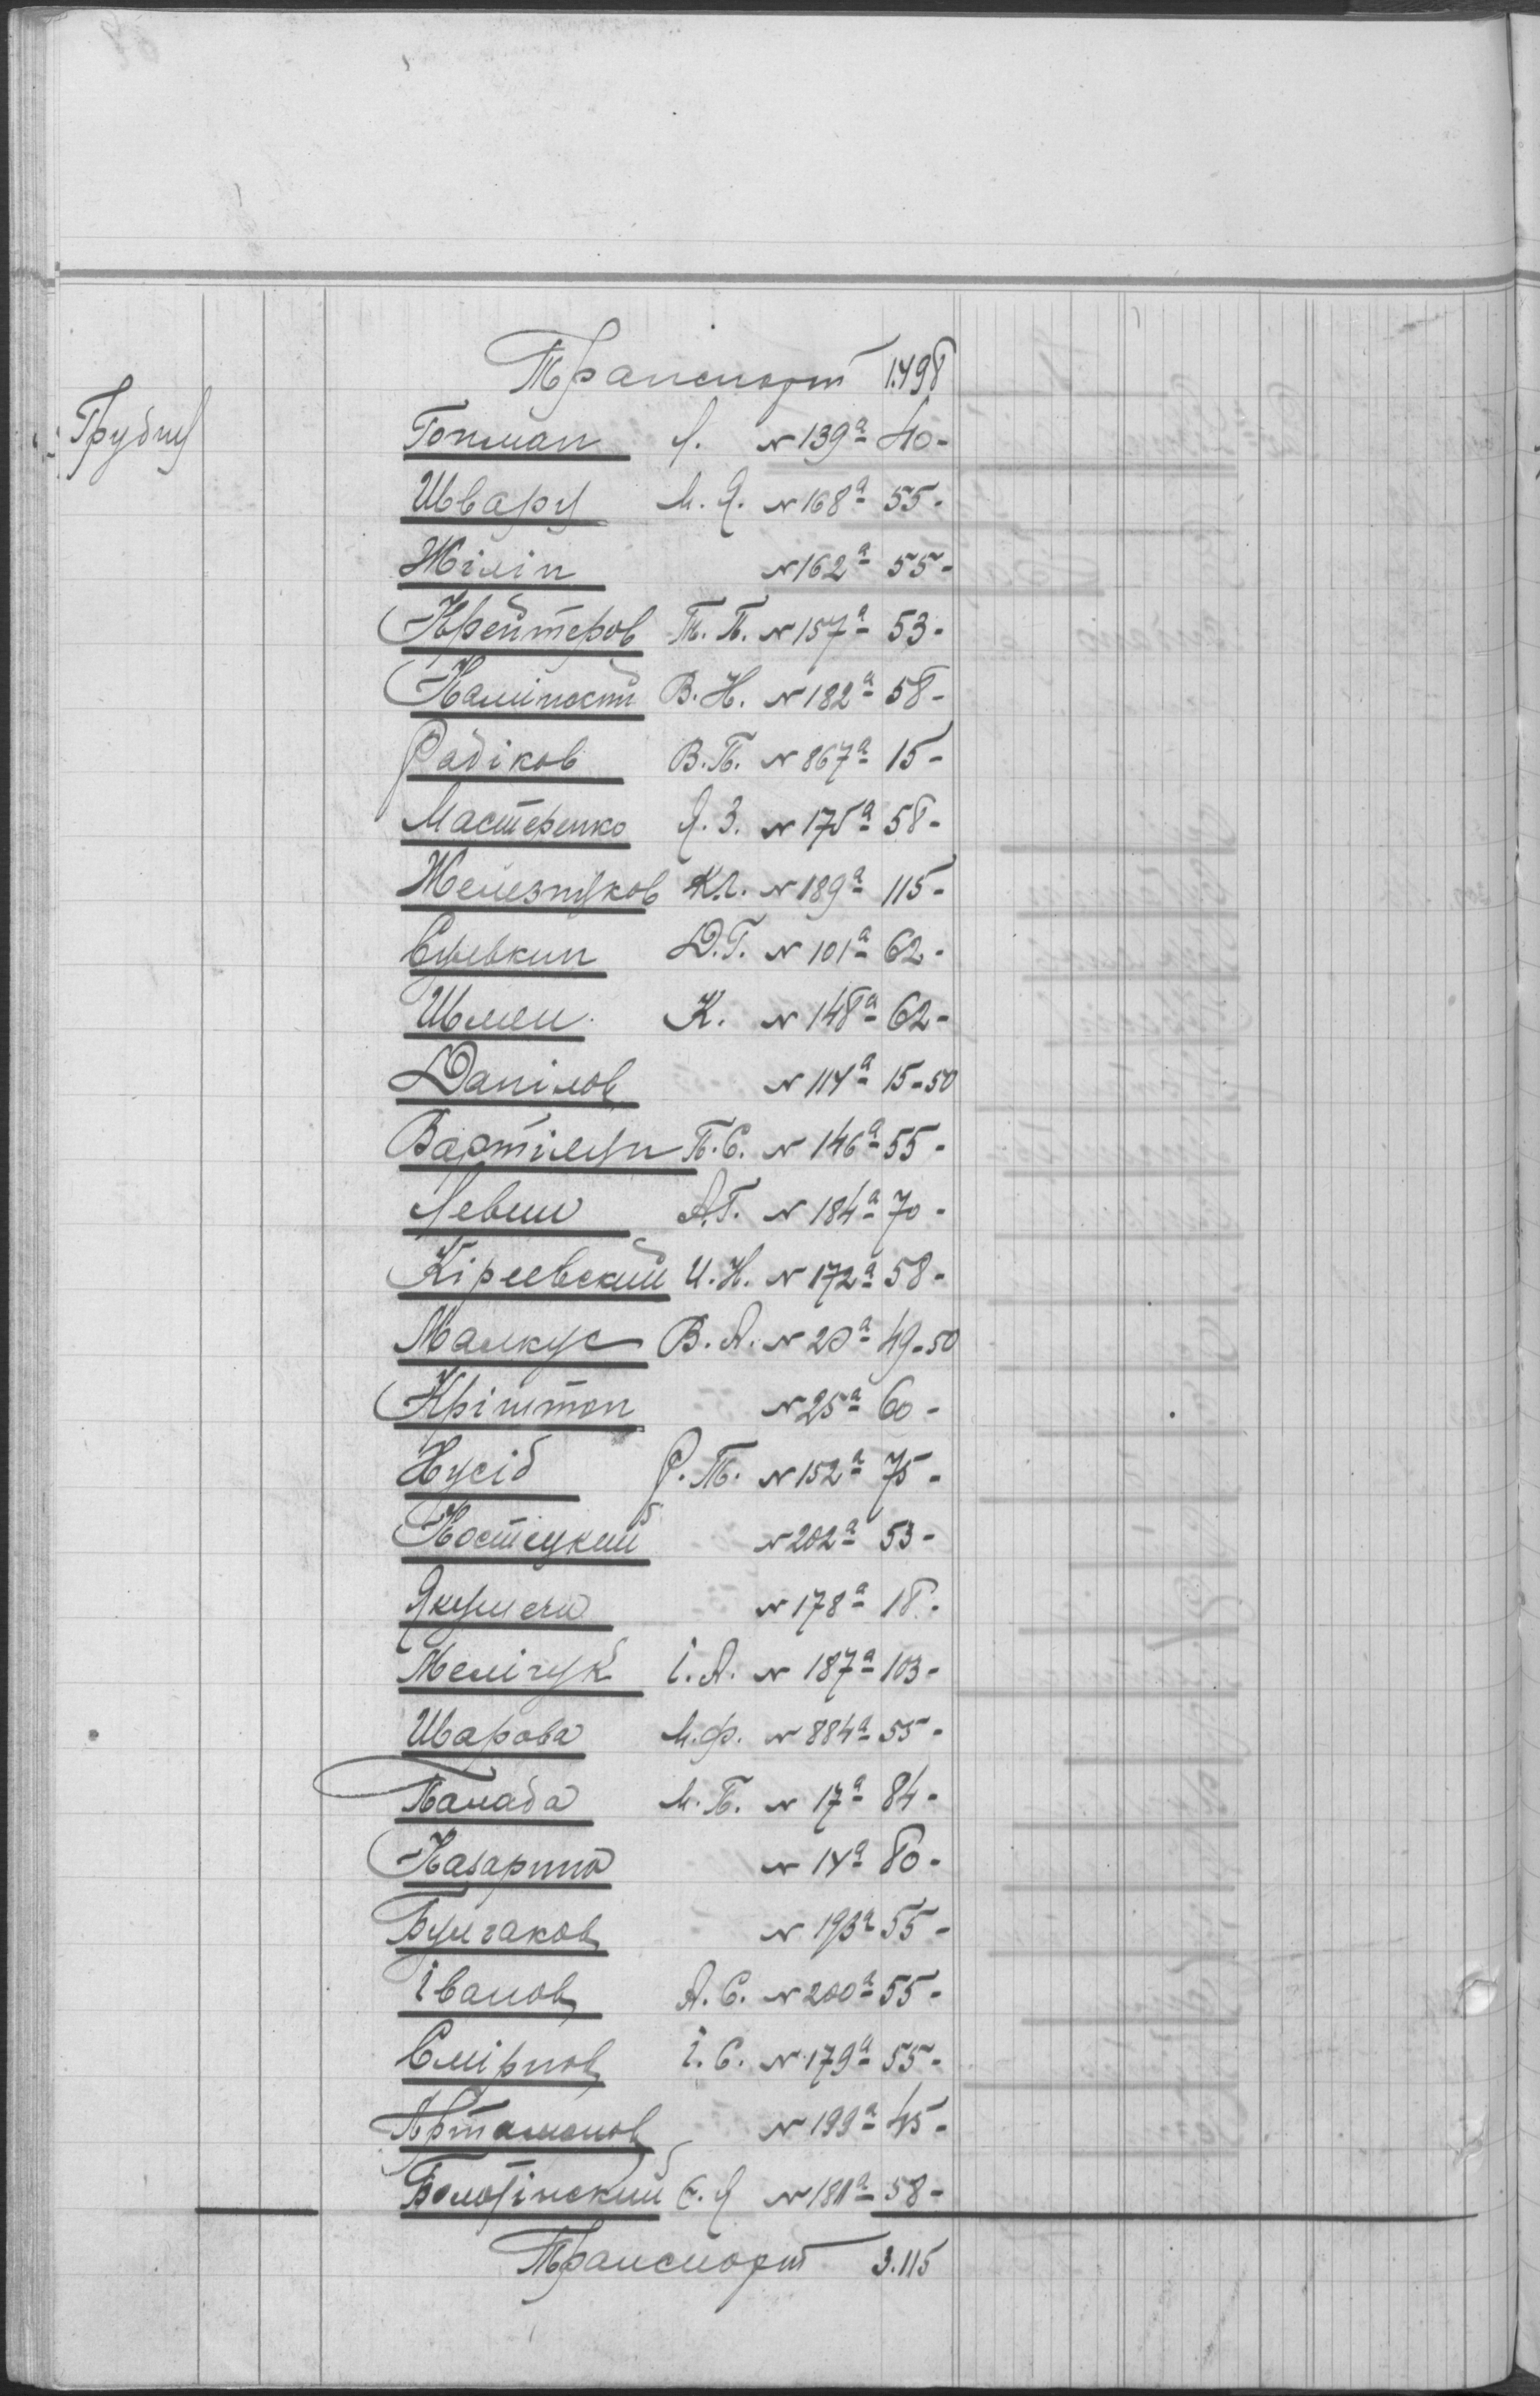 Транспорт 1.498
Трудни Гопман Л. № 139а 40-
Шварц М. Я. № 168а 55-
Жілін № 162а 55-
Крейтеров Т. П. № 157а 53-
В. Н. № 182а 58-
Радіков В. П. № 867а 15-
Мастеренко Я. З. № 175а 58-
Железняков К. Л. № 189а 115-
Д. Г. № 101а 62-
Шмен К. № 148а 62-
Данілов № 114а 15-50
П. С. № 146а 55-
Левин А. Г. № 184а 70-
Кіреевский И. Н. № 172а 58-
Малкус В. А. № 20а 49-50
Кріштоп № 25а 60-
Нусіб Р. Т. № 152а 75-
Костецкий № 202а 53-
№ 178а 18-
Мелічук І. А. № 187а 103-
Шарова М. Ф. № 884а 55-
М. П. № 17а 84-
№ 14а 80-
Булгаков № 193а 55-
Іванов А. С. № 200а 55-
Смірнов І. С. № 179а 55-
Артамонов № 199а 45-
Болотінский Є. Я № 181а 58-
Транспорт 3.115